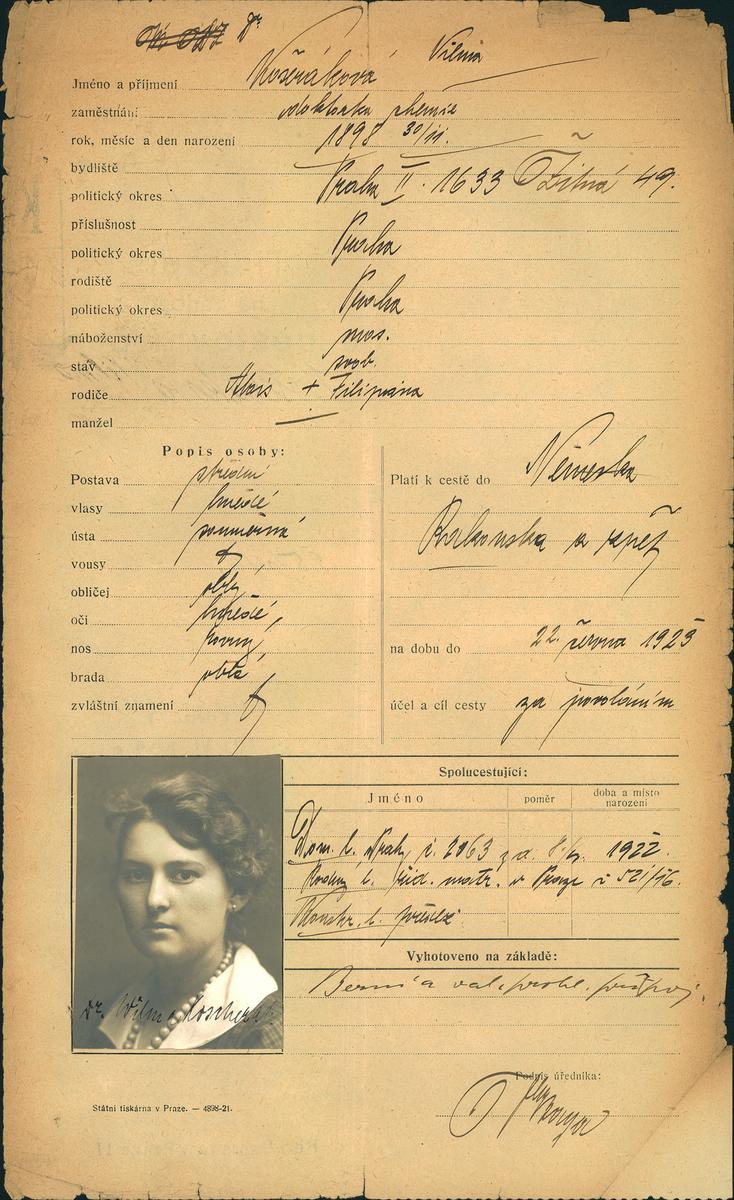 Dr. Košeráková Vilma
Jméno a příjmení
zaměstnání doktorka chemie
rok, měsíc a den narození 1898 30/11.
bydliště
Praha II. 1633 Žitná 49.
politický okres
příslušnost
Praha
politický okres
rodiště
Praha
politický okres
náboženství mos.
stav svob.
rodiče Alois + Filipina
manžel —
Popis osoby:
Postava střední
vlasy hnědé
ústa souměrná
vousy
obličej oblý
oči hnědé
nos rovný
brada oblá
zvláštní znamení
Platí k cestě do Německa
Rakouska a zpět
na dobu do 22. června 1925
účel a cíl cesty za povoláním
Spolucestující:
Jméno poměr doba a místo narození
Dom. l. Prahy č. 2063 z d. 1922.
l. žid. matr. v Praze č 521/
l.
Vyhotoveno na základě:
Berní a
Dr. Wilma
Podpis úředníka:
Státní tiskárna v Praze. — 4898-21.